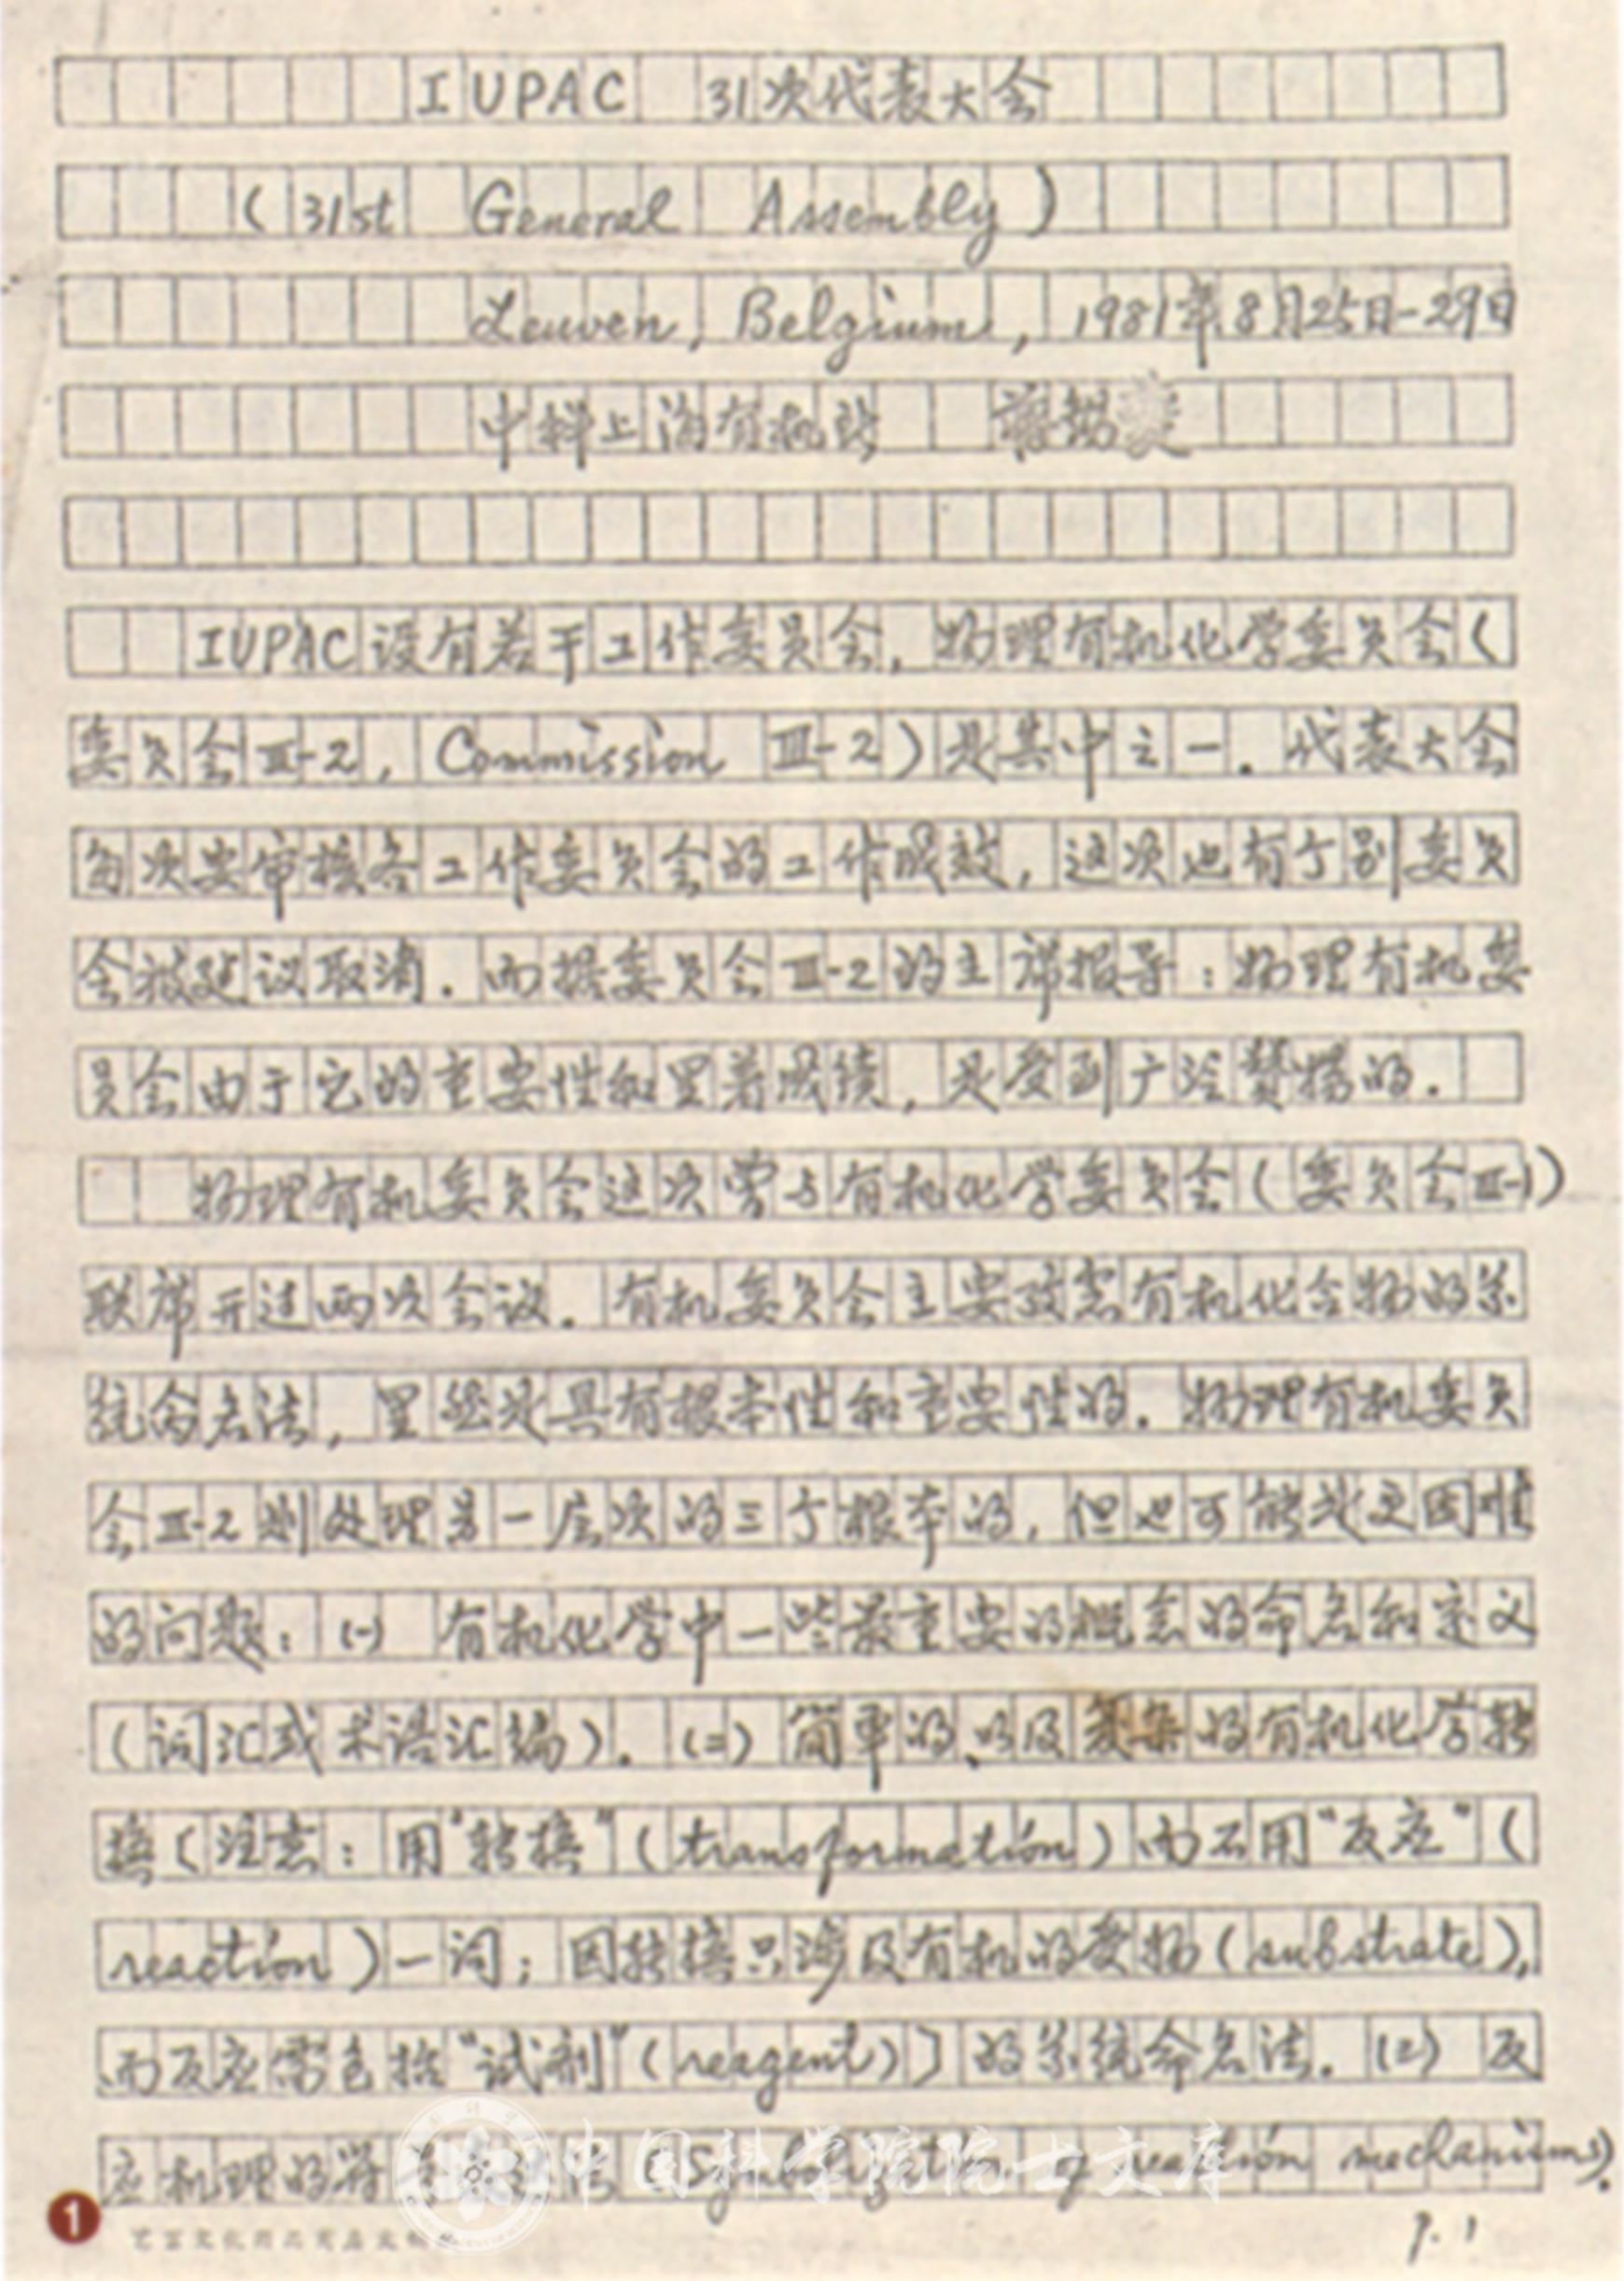 IUPAC 31次代表大会
(31st General Assembly)
Leuven, Belgium, 1981年8月25日-29日
中科上海有机所 蒋锡夔
IUPAC设有若干工作委员会,物理有机化学委员会(
委员会Ⅲ-2, Commission Ⅲ-2)是其中之一.代表大会
每次要审核各工作委员会的工作成效,这次也有个别委员
会被建议取消.而据委员会Ⅲ-2的主席报导:物理有机委
员会由于它的重要性和显著成绩,是受到广泛赞扬的.
物理有机委员会这次曾与有机化学委员会(委员会Ⅲ-1)
联席开过两次会议.有机委员会主要考虑有机化合物的系
统命名法,显然是具有根本性和重要性的.物理有机委员
会Ⅲ-2则处理另一层次的三个根本的,但也可能成更困难
的问题:(一) 有机化学中一些最重要的概念的命名和定义
(词汇或术语汇编).(二)简单的、以及复杂的有机化学转
换(注意:用“转换”(transformation)而不用“反应”(
reaction)一词;因转换只涉及有机的受物(substrate),
而反应需包括“试剂”(reagent)〕的系统命名法.(三) 反
应机理的符 法(Symbolization of reaction mechanisms).
中国科学院院士文库
1
p. 1